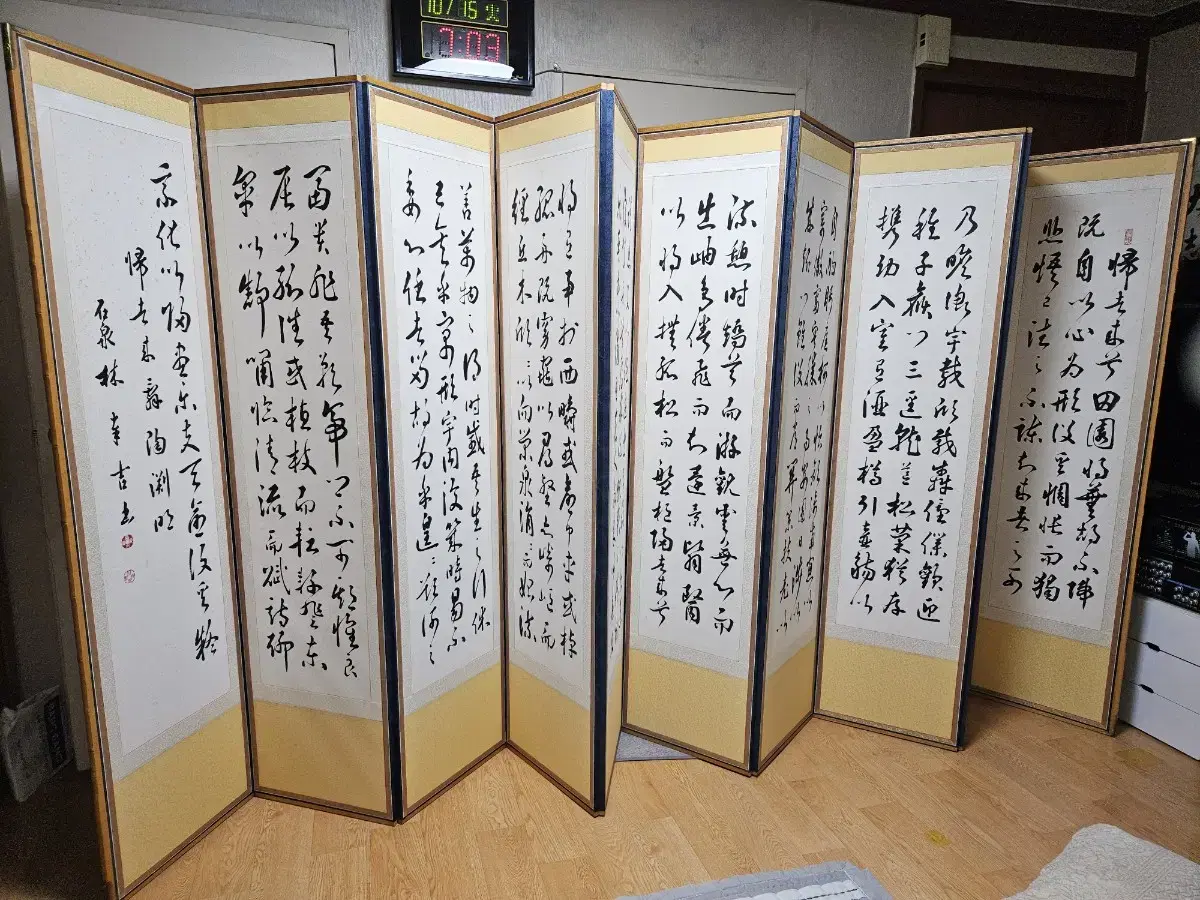 10/15 火
7:03
歸去來兮田園將蕪胡不歸
既自以心為形役奚惆悵而獨
悲悟已往之不諫知來者之可
乃瞻衡宇載欣載奔僮僕歡迎
稚子候門三逕就荒松菊猶存
携幼入室有酒盈樽引壺觴以
自酌眄庭柯以怡顔倚南窓以
寄傲審容膝之易安園日涉以
成趣門雖設而常關策扶老以
流憩時矯首而游觀雲無心而
出岫鳥倦飛而知還景翳翳
以將入撫孤松而盤桓歸去來兮
將有事於西疇或命巾車或棹
孤舟既窈窕以尋壑亦崎嶇而
經丘木欣欣以向榮泉涓涓而始流
善萬物之得時感吾生之行休
已矣乎寓形宇內復幾時曷不
委心任去留胡為乎遑遑欲何之
富貴非吾願帝鄉不可期懷良
辰以孤往或植杖而耘耔登東
皐以舒嘯臨清流而賦詩聊
乘化以歸盡樂夫天命復奚疑
歸去來辭陶淵明
石泉林幸吉書